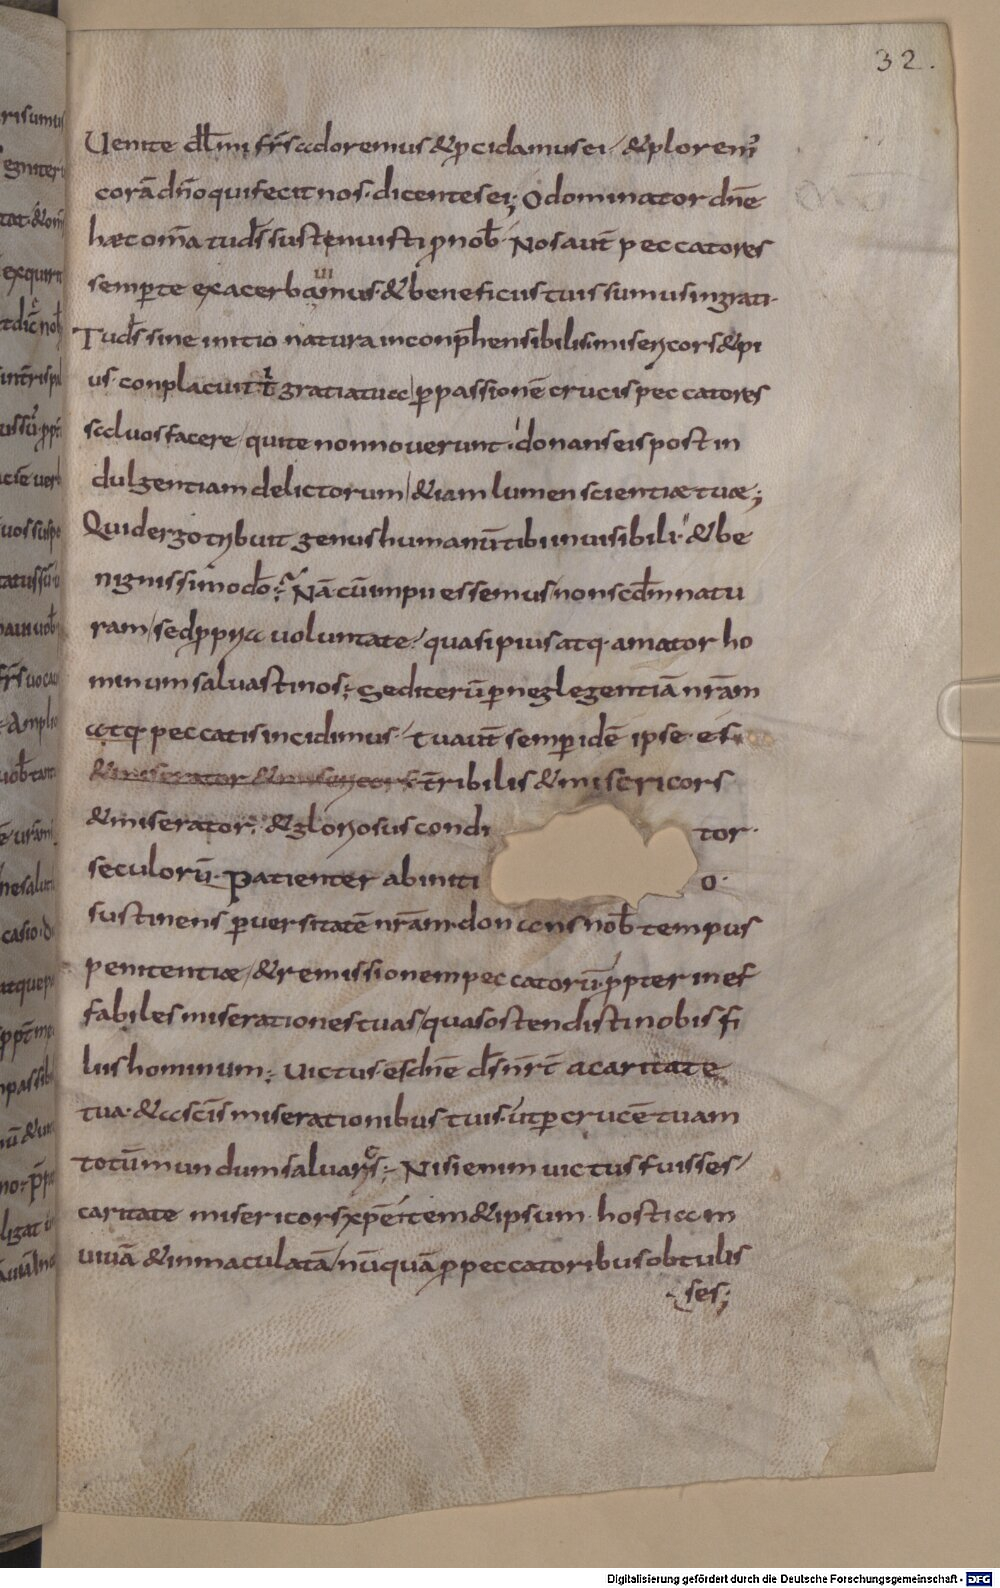 32.
Uenite dłmi frs̄ adoremus & pcidamus ei / & plorem᷒
corā dn̄o qui fecit nos · dicentes ei; O dominator dn̄e
hæc om̄a tu ds̄ sustenuisti ꝓ nob̄ · Nos aut̄ peccatores
semp te exacerbauimus · & beneficus tuis sumus ingrati ·
Tu ds̄ sine initio natura inconp̄hensibilis · misericors & pi
us · conplacuit t̄ gratia tua / ꝑ passionē crucis peccatores
saluos facere / qui te non nouerunt · donans eis post in
dulgentiam delictorum / & iam lumen scientiæ tuæ;
Quid ergo tribuit genus humanū tibi inuisibili · & be
nignissimo dō? Nā cū impii essemus / non scdm̄ natu
ram / sed ꝓpria uoluntate / quasi pius atq· amator ho
minum saluasti nos; Sed iterū ꝑ neglegentiā nrām
atq· peccatis incidimus · tu aut̄ semp idē ipse es
& miserator & misericors t̄ribilis & misericors
& miserator · & gloriosus condi tor ·
seculorū · Patienter ab initi o ·
sustinens ꝑuersitatē nrām · donans nob̄ tempus
penitentiæ / & remissionem peccatorū · ꝓpter inef
fabiles miserationes tuas / quas ostendisti nobis fi
liis hominum; Uictus es dn̄e ds̄ nr̄ t̄ a caritate
tua · & a scīs miserationibus tuis · ut ꝑ crucē tuam
totū mundum saluares; Nisi enim uictus fuisses /
caritate misericors xpē · item & ipsum hostiam
uiuā & inmaculatā / nūquā ꝓ peccatoribus obtulis
ses;
Digitalisierung gefördert durch die Deutsche Forschungsgemeinschaft - DFG